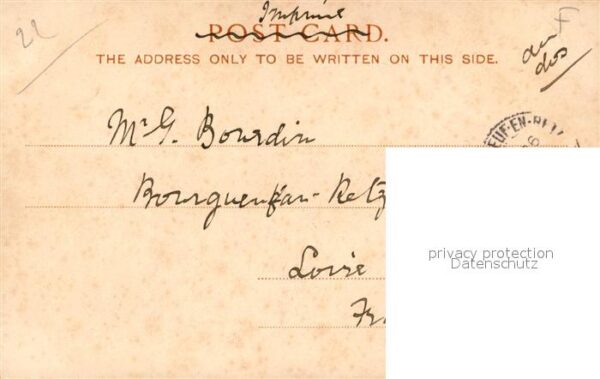 22
Imprimé
POST CARD.
F
THE ADDRESS ONLY TO BE WRITTEN ON THIS SIDE.
au
dos
Mr G. Bourdin
EUF-EN-RET
Bourgueneuf-en-Retz
privacy protection
Datenschutz
Loire
Fr